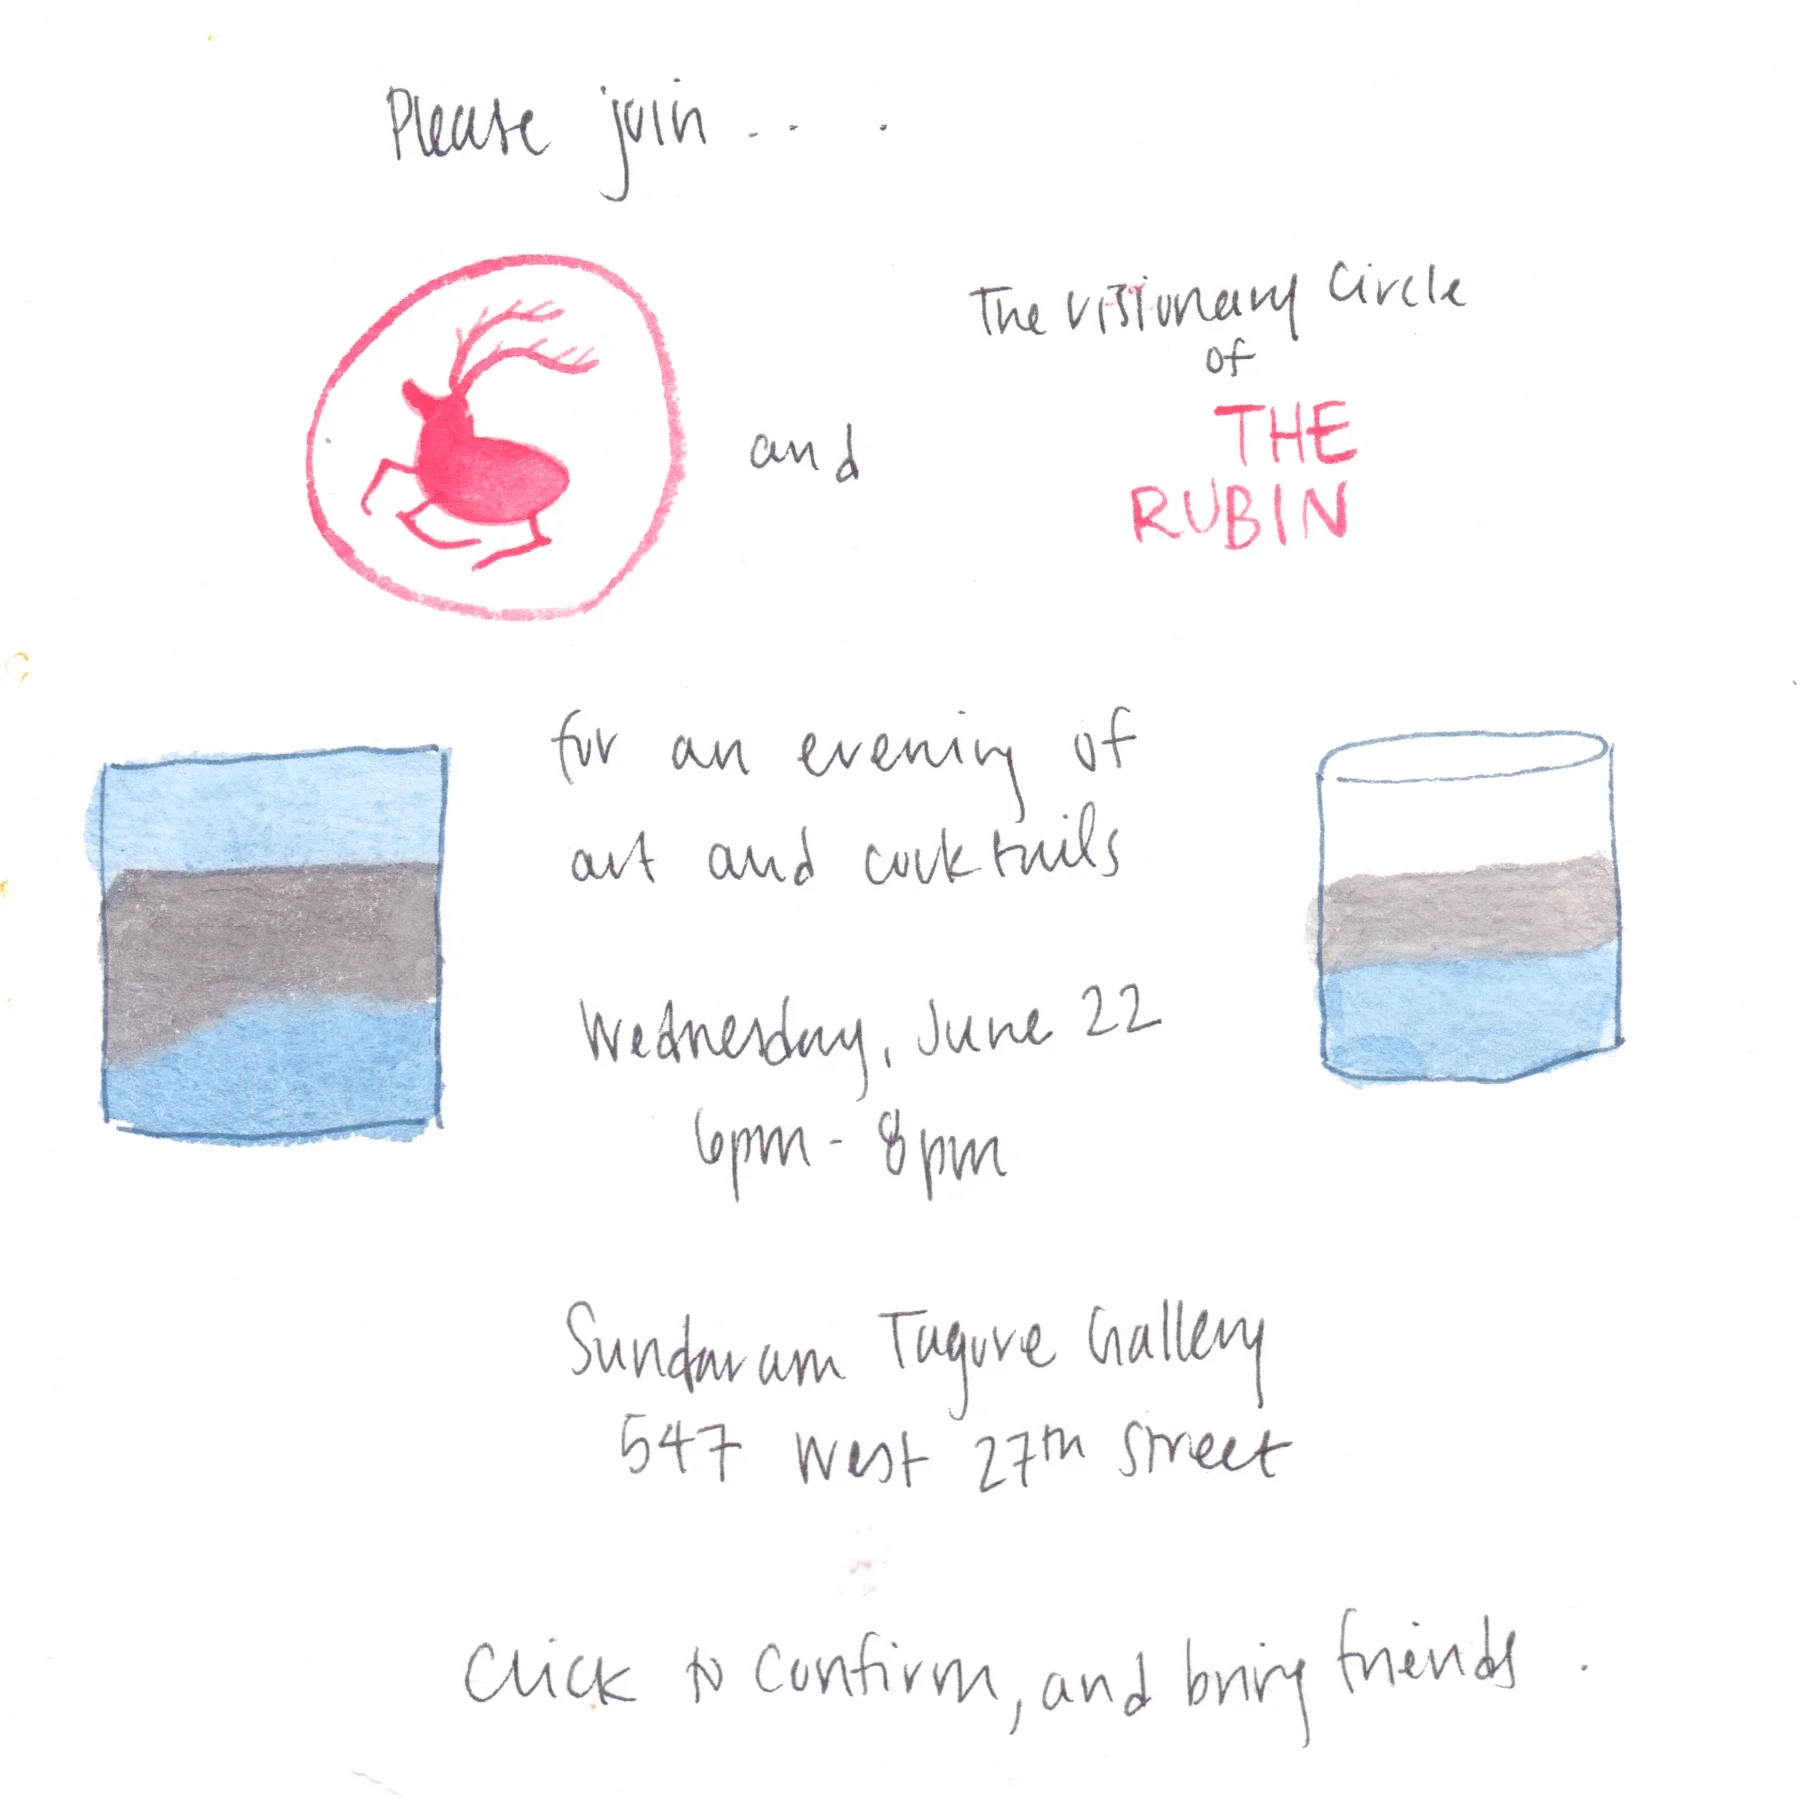 Please join ...
and
The Visionary Circle
of
THE
RUBIN
for an evening of
art and cocktails
Wednesday, June 22
6pm - 8pm
Sundaram Tagore Gallery
547 West 27th Street
Click to confirm, and bring friends.